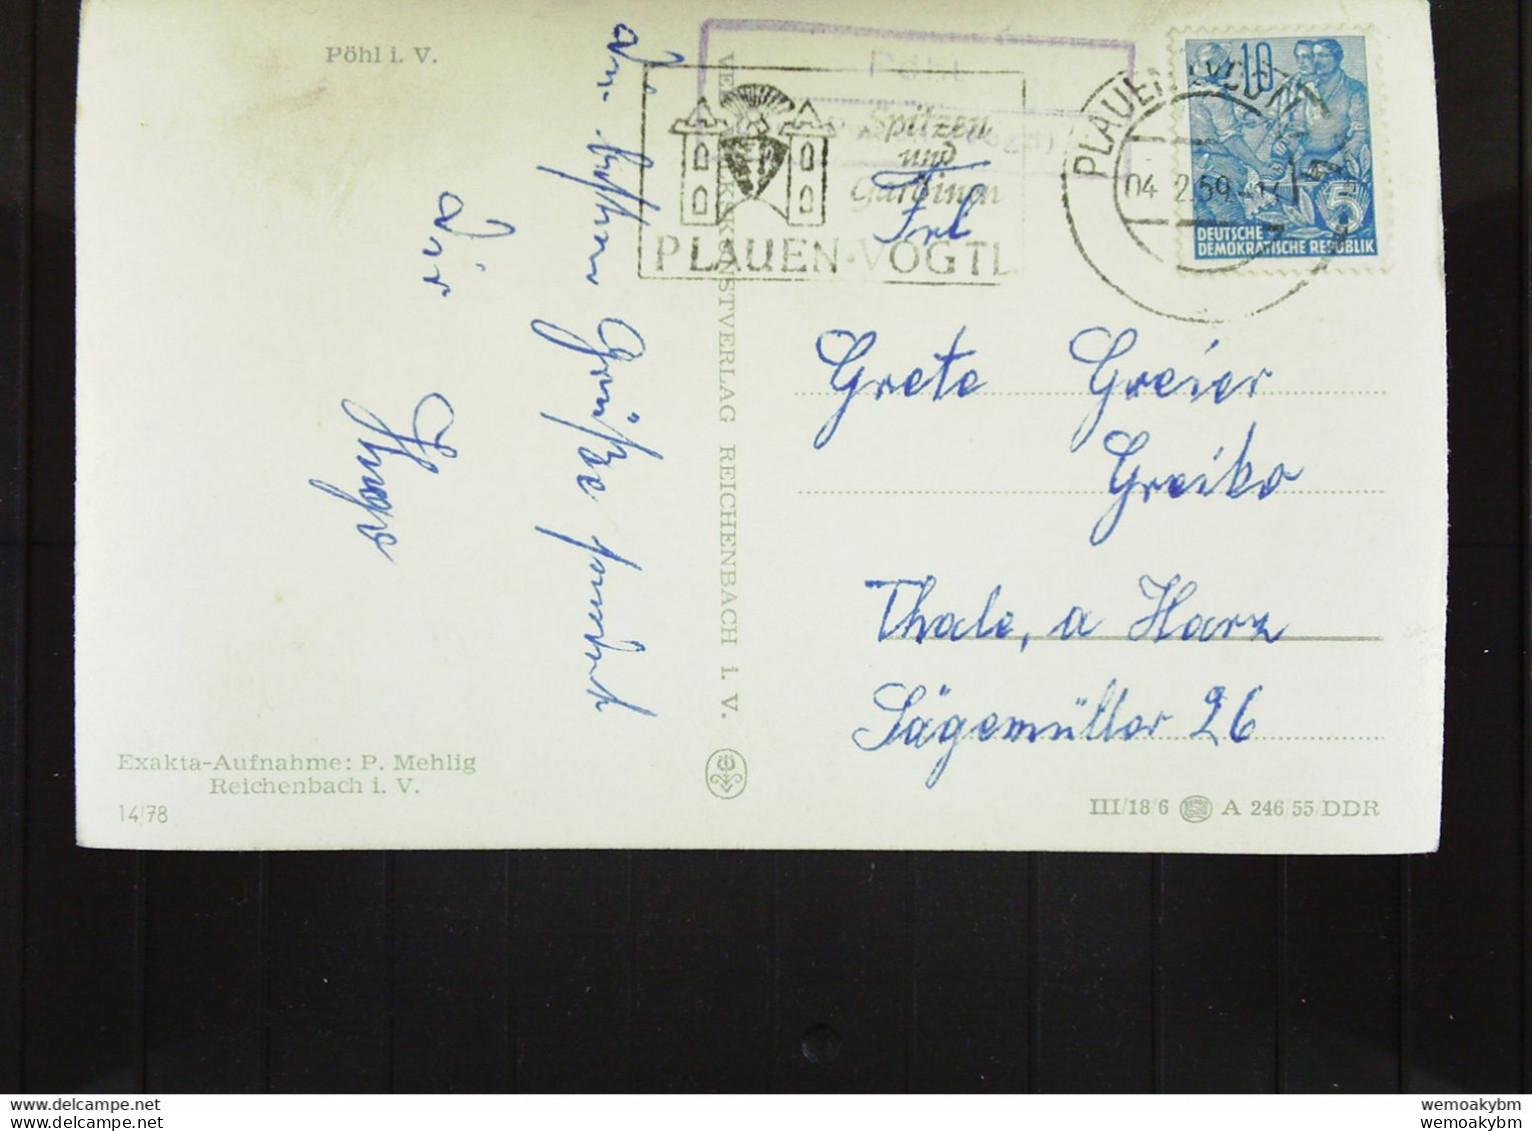 Pöhl i. V.
Die besten Grüße sendet
Dir
Hugo
Exakta-Aufnahme: P. Mehlig
Reichenbach i. V.
14/78
KUNSTVERLAG REICHENBACH i. V.
Pöhl
Spitzen
und
Gardinen
PLAUEN·VOGTL
PLAUEN (VOGTL)
04.2.59
10
5
DEUTSCHE
DEMOKRATISCHE REPUBLIK
Frl
Grete Greier
Thale, a Harz
Sägemüller 26
III/18/6 A 246/55/DDR
wemoakybm
wemoakybm
delcampe.net
delcampe.net
wemoakybm
wemoakybm